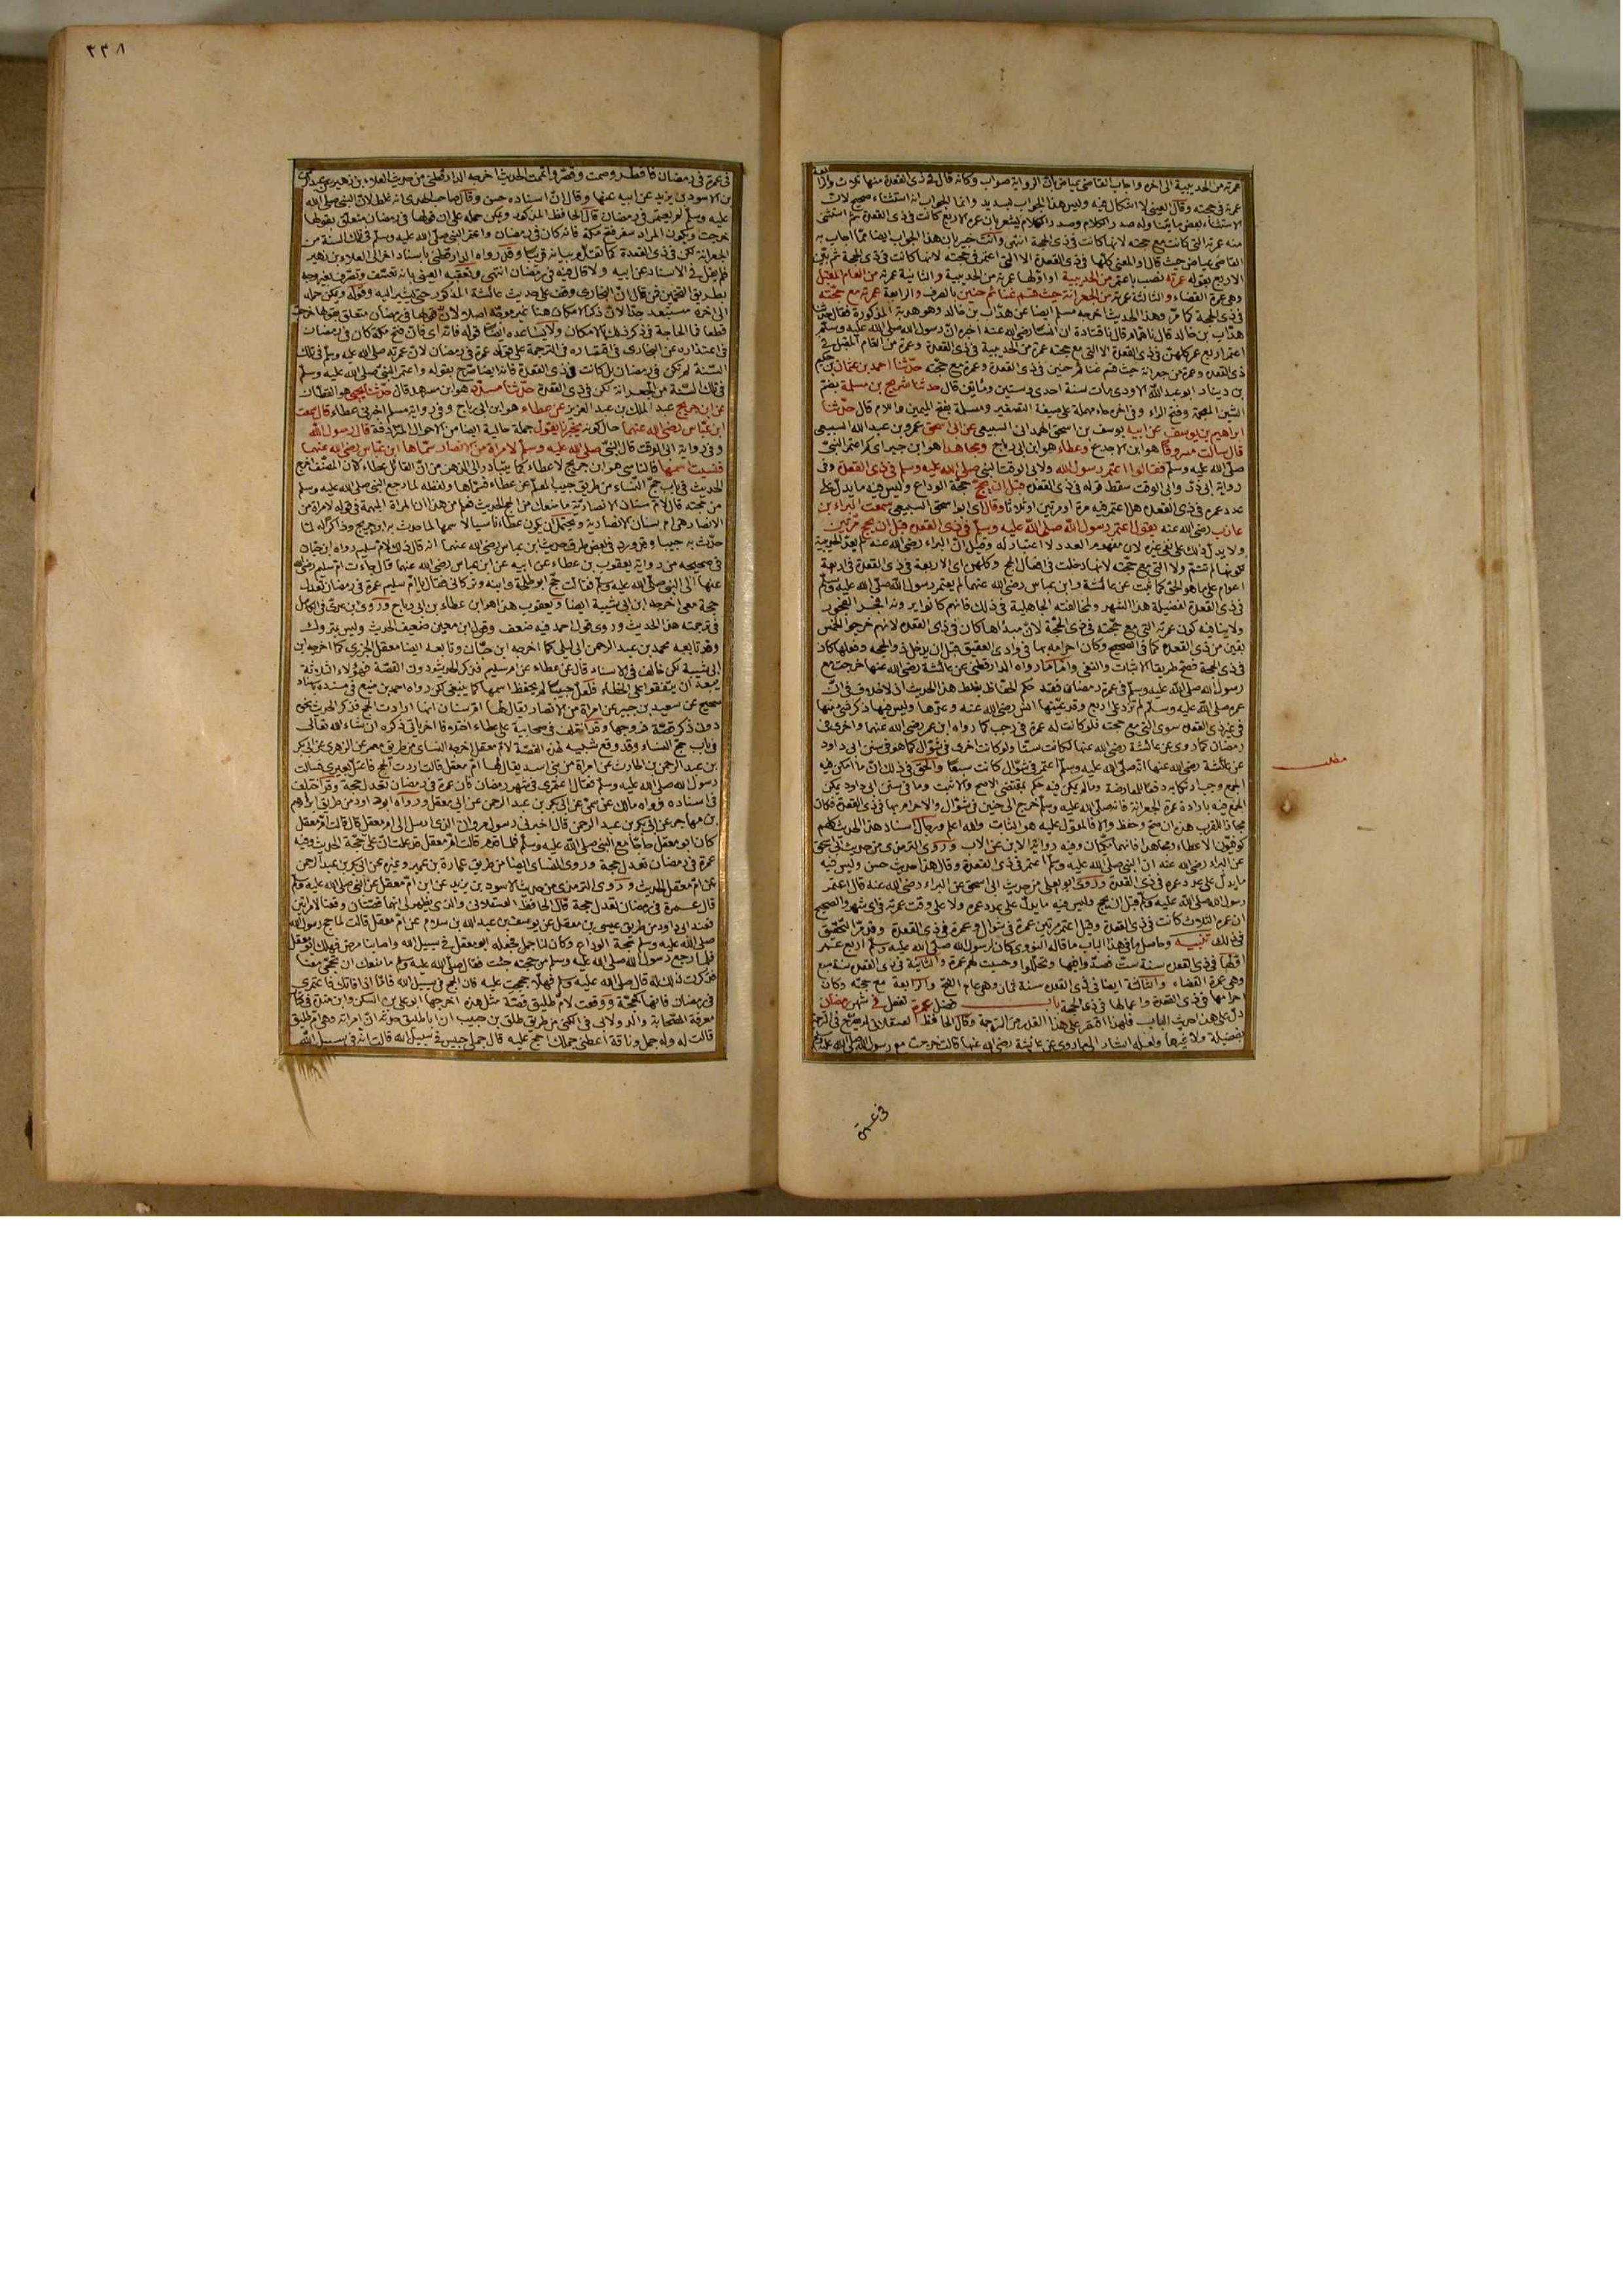 عمرته من الحديبية الى اخره واجاب القاضي عياض بان الرواية صواب وكأنه قال في ذي القعدة منها ثلاث والرابعة
عمرته في حجته وقال العيني لا اشكال فيه وليس هذا الجواب بسديد وانما الجواب انه استثناء صحيح لان
القاضي عياض حيث قال والمعنى كلها في ذي القعدة الا التي اعتمر في حجته لانها كانت في ذي الحجة ثم بيّن
الاربع بقوله عمرته نصب باعتمر من الحديبية اولها عمرته من الحديبية والثانية عمرته من العام المقبل
وهي عمرة القضاء والثالثة عمرته من الجعرانة حيث قسم غنائم حنين بالصرف والرابعة عمرته مع حجته
في ذي الحجة كما مرّ وهذا الحديث اخرجه مسلم ايضا عن هدّاب بن خالد وهو هدبة المذكورة فقال حدثنا
هدّاب بن خالد قال نا همام قال نا قتادة ان انسا رضي الله عنه اخبره ان رسول الله صلى الله عليه وسلم
اعتمر اربع عمر كلهن في ذي القعدة الا التي مع حجته عمرة من الحديبية في ذي القعدة وعمرة من العام المقبل في
ذي القعدة وعمرة من جعرانة حيث قسم غنائم حنين في ذي القعدة وعمرة مع حجته حدّثنا احمد بن عثمان بن حكيم
بن دينار ابو عبد الله الاودي مات سنة احدى وستين ومأتين قال حدثنا شريح بن مسلمة بضم
الشين المعجمة وفتح الراء وفي اخره حاء مهملة على صيغة التصغير ومسلمة بفتح الميمين واللام قال حدّثنا
ابراهيم بن يوسف عن ابيه يوسف بن اسحق الهمداني السبيعي عن ابي اسحق عمرو بن عبد الله السبيعي
قال سألت مسروقا هو ابن الاجدع وعطاء هو ابن ابي رباح ومجاهدا هو ابن جبر اي كم اعتمر النبيّ
صلى الله عليه وسلم فقالوا اعتمر رسول الله ولابي الوقت النبي صلى الله عليه وسلم في ذي القعدة وفي
رواية ابي ذر وابي الوقت سقط قوله في ذي القعدة قبل ان يحج حجة الوداع وليس فيه ما يدل على
عدد عمره في ذي القعدة هل اعتمر فيه مرة او مرتين او ثلاثا وقال اي ابو اسحق السبيعي سمعت البراء بن
عازب رضي الله عنه يقول اعتمر رسول الله صلى الله عليه وسلم في ذي القعدة قبل ان يحج مرّتين
ولا يدل ذلك على نفي غيره لان مفهوم العدد لا اعتبار له وقيل ان البراء رضي الله عنه لم يعدّ الحديبية
لكونها لم تتم ولا التي مع حجته لانها دخلت في افعال الحج وكلهن اي الاربعة في ذي القعدة في اربعة
اعوام على ما هو الحق كما ثبت عن عائشة وابن عباس رضي الله عنهما لم يعتمر رسول الله صلى الله عليه وسلم
في ذي القعدة لفضيلة هذا الشهر ولمخالفته الجاهلية في ذلك فانهم كانوا يرونه افجر الفجور
ولا ينافيه كون عمرته التي مع حجّته في ذي الحجّة لان مبدأها كان في ذي القعدة لانهم خرجوا لخمس
بقين من ذي القعدة كما في الصحيح وكان احرامه بها في وادي العقيق قبل ان يدخل ذو الحجة وفعلها كان
في ذي الحجة فصح طريقا الاثبات والنفي وامّا ما رواه الدارقطني عن عائشة رضي الله عنها خرجت مع
رسول الله صلى الله عليه وسلم في عمرة رمضان فقد حكم الحفاظ بغلط هذا الحديث اذ لا خلاف في انّ
عمره صلى الله عليه وسلم لم تزد على اربع وقد عيّنها انس رضي الله عنه وعدّها وليس فيها ذكر شيء منها
في غير ذي القعدة سوى التي مع حجته فلو كانت له عمرة في رجب كما رواه ابن عمر رضي الله عنهما واخرى في
رمضان كما روي عن عائشة رضي الله عنها لكانت ستّا ولو كانت اخرى في شوّال كما هو في سنن ابي داود
عن عائشة رضي الله عنها انه صلى الله عليه وسلم اعتمر في شوّال كانت سبعًا والحق في ذلك ان ما امكن فيه
الجمع وجب ارتكابه دفعا للمعارضة وما لم يكن فيه حكم بمقتضى الاصح والاثبت وما في سنن ابي داود يمكن
الجمع فيه بارادة عمرة الجعرانة فانه صلى الله عليه وسلم خرج الى حنين في شوّال والاحرام بها في ذي القعدة فكان
مجازا للقرب هذا ان صح وحفظ والا فالمعوّل عليه هو الثابت والله اعلم ورجال اسناد هذا الحديث كلهم
كوفيّون الا عطاء ومجاهدا فانهما مكيّان وفيه رواية الابن عن الاب وروى الترمذي من حديث ابي اسحق
عن البراء رضي الله عنه ان النبي صلى الله عليه وسلم اعتمر في ذي القعدة وقال هذا حديث حسن وليس فيه
ما يدل على عدد عمره في ذي القعدة وروى ابو يعلى من حديث ابي اسحق عن البراء رضي الله عنه قال اعتمر
رسول الله صلى الله عليه وسلم قبل ان يحج وليس فيه ما يدل على عدد عمره ولا على وقت عمرته في اي شهر والصحيح
ان عمره الثلاث كانت في ذي القعدة وقيل اعتمر مرتين عمرة في شوال وعمرة في ذي القعدة وقد مرّ التحقيق
في ذلك تنبيه وحاصل ما في هذا الباب ما قاله النووي كان لرسول الله صلى الله عليه وسلم اربع عمر
اوّلها في ذي القعدة سنة ستّ فصدّوا فيها وتحلّلوا وحسبت لهم عمرة والثانية في ذي القعدة سنة سبع
وهي عمرة القضاء والثالثة ايضا في ذي القعدة سنة ثمان وهي عام الفتح والرابعة مع حجته وكان
احرامها في ذي القعدة واعمالها في ذي الحجة باب فضل عمرة تفعل في شهر رمضان
دلّ على هذا حديث الباب فلهذا اقتصر على هذا القدر من الترجمة وقال الحافظ العسقلاني لم يصرّح في الترجمة
بفضيلة ولا غيرها ولعله اشار الى ما روي عن عائشة رضي الله عنها قالت خرجت مع رسول الله صلى الله عليه وسلم
مطلب
في عمرة
٣٣٨
في عمرة في رمضان فافطر وصمت وقصر واتممت الحديث اخرجه الدارقطني من حديث العلاء بن زهير عن عبد الرحمن
بن الاسود بن يزيد عن ابيه عنها وقال انّ اسناده حسن وقال صاحب الهدى انه غلط لان النبي صلى الله
عليه وسلم لم يعتمر في رمضان قال الحافظ المذكور ويمكن حمله على ان قولها في رمضان متعلق بقولها
خرجت ويكون المراد سفر فتح مكة فانه كان في رمضان واعتمر النبي صلى الله عليه وسلم في تلك السنة من
الجعرانة لكن في ذي القعدة كما تقدّم بيانه قريبا وقد رواه الدارقطني باسناد اخر الى العلاء بن زهير
فلم يقل في الاسناد عن ابيه ولا قال فيه في رمضان انتهى وتعقبه العيني بانه تعسّف وتصرّف بغير وجه
بطريق التخمين فمن قال ان البخاري وقف على حديث عائشة المذكور حتى يشير اليه وقوله ويمكن حمله
الى اخره مستبعد جدّا لان ذكر الامكان هنا غير موجّه اصلا لان قولها في رمضان متعلق بقولها خرجت
قطعا فما الحاجة في ذكر ذلك الامكان ولا يساعده ايضا قوله فانه اي فان فتح مكة كان في رمضان
في اعتذاره عن البخاري في اقتصاره في الترجمة على قوله عمرة في رمضان لان عمرته صلى الله عليه وسلم في تلك
السّنة لم تكن في رمضان بل كانت في ذي القعدة فانه ايضا صرّح بقوله واعتمر النبيّ صلى الله عليه وسلم
في تلك السّنة من الجعرانة لكن في ذي القعدة حدّثنا مسدّد هو ابن مسرهد قال حدّثنا يحيى هو القطان
عن ابن جريج عبد الملك بن عبد العزيز عن عطاء هو ابن ابي رباح وفي رواية مسلم اخبرني عطاء قال سمعت
ابن عبّاس رضي الله عنهما حال كونه يخبرنا يقول جملة حالية ايضا من الاحوال المترادفة قال رسول الله
وفي رواية ابي الوقت قال النبيّ صلى الله عليه وسلم لامرأة من الانصار سمّاها ابن عباس رضي الله عنهما
فنسيت اسمها قال الناسي هو ابن جريج لا عطاء كما يتبادر الى الذهن من انّ القائل عطاء لان المصنّف اخرج
الحديث في باب حج النساء من طريق حبيب المعلم عن عطاء فسمّاها ولفظه لما رجع النبي صلى الله عليه وسلم
من حجته قال لام سنان الانصاريّة ما منعك من الحج الحديث
الانصار هي ام سنان الانصارية ويحتمل ان يكون عطاء ناسيا لاسمها لما حدث به ابن جريج وذاكرا له لما
حدّث به حبيبا
في صحيحه من رواية يعقوب بن عطاء عن ابيه عن ابن عباس رضي الله عنهما قال جاءت ام سليم رضي الله
عنها الى النبي صلى الله عليه وسلم فقالت حجّ ابو طلحة وابنه وتركاني فقال يا امّ سليم عمرة في رمضان تعدل
حجة معي اخرجه ابن ابي شيبة ايضا ويعقوب هذا هو ابن عطاء بن ابي رباح وروى ابن عديّ في الكامل
في ترجمته هذا الحديث وروى قول احمد فيه ضعف وقول ابن معين ضعيف الحديث وليس بمتروك
وقد تابعه محمد بن عبد الرحمن بن ابي ليلى كما اخرجه ابن حبّان وتابعه ايضا معقل الجزري كما اخرجه ابن
ابي شيبة لكن خالف في الاسناد قال عن عطاء عن ام سليم فذكر الحديث دون القصة فهؤلاء الثلاثة
يبعد ان يتفقوا على الخطاء فلعلّ حبيبًا لم يحفظ اسمها كما ينبغي لكن رواه احمد بن منيع في مسنده باسناد
صحيح عن سعيد بن جبير عن امرأة من الانصار يقال لها ام سنان انها ارادت الحج فذكر الحديث نحوه
دون ذكر قصّة زوجها وقد اختلف في صحابية على عطاء اختلافا اخر يأتي ذكره ان شاء الله تعالى
في باب حج النساء وقد وقع شبيه لهذه القصّة لام معقل اخرجه النسائي من طريق معمر عن الزهري عن ابي بكر
بن عبد الرحمن بن الحارث عن امرأة من بني اسد يقال لها امّ معقل قالت اردت الحج فاعتلّ بعيري فسألت
رسول الله صلى الله عليه وسلم فقال اعتمري في شهر رمضان فان عمرة في رمضان تعدل حجة وقد اختلف
في اسناده فرواه مالك عن سميّ عن ابي بكر بن عبد الرحمن عن ابي معقل ورواه ابو داود من طريق ابراهيم
بن مهاجر عن ابي بكر بن عبد الرحمن قال اخبرني رسول مروان الذي ارسل الى ام معقل قال قالت امّ معقل
كان ابو معقل حاجّا مع النبي صلى الله عليه وسلم فلما قدم قالت امّ معقل قد علمت انّ عليّ حجّة الحديث وفيه
عمرة في رمضان تعدل حجة وروى النسائي ايضا من طريق عمارة بن عمير وغيره عن ابي بكر بن عبد الرحمن
عن امّ معقل الحديث وروى الترمذي من حديث الاسود بن يزيد عن ابن امّ معقل عن النبي صلى الله عليه وسلم
قال عمرة في رمضان تعدل حجة قال الحافظ العسقلاني والذي يظهر لي انهما قصّتان وقعتا لامرأتين
فعند ابي داود من طريق عيسى بن معقل عن يوسف بن عبد الله بن سلام عن امّ معقل قالت لما حج رسول الله
صلى الله عليه وسلم حجة الوداع وكان لنا جمل فجعله ابو معقل في سبيل الله واصابنا مرض فهلك ابو معقل
فلما رجع رسول الله صلى الله عليه وسلم من حجته جئت فقال صلى الله عليه وسلم ما منعك ان تحجّي معنا
فذكرت ذلك له قال صلى الله عليه وسلم فهلّا حججت عليه فان الحج في سبيل الله فامّا اذا فاتك فاعتمري
في رمضان فانها كحجّة ووقعت لامّ طليق قصّة مثل هذه اخرجها ابو علي بن السكن وابن مندة في كتاب
معرفة الصّحابة والدولابي في الكنى من طريق طلق بن حبيب ان ابا طليق حدثه انّ امرأته وهي ام طليق
قالت له وله جمل وناقة اعطني جملك احج عليه قال جملي حبيس في سبيل الله قالت انه في سبيل الله